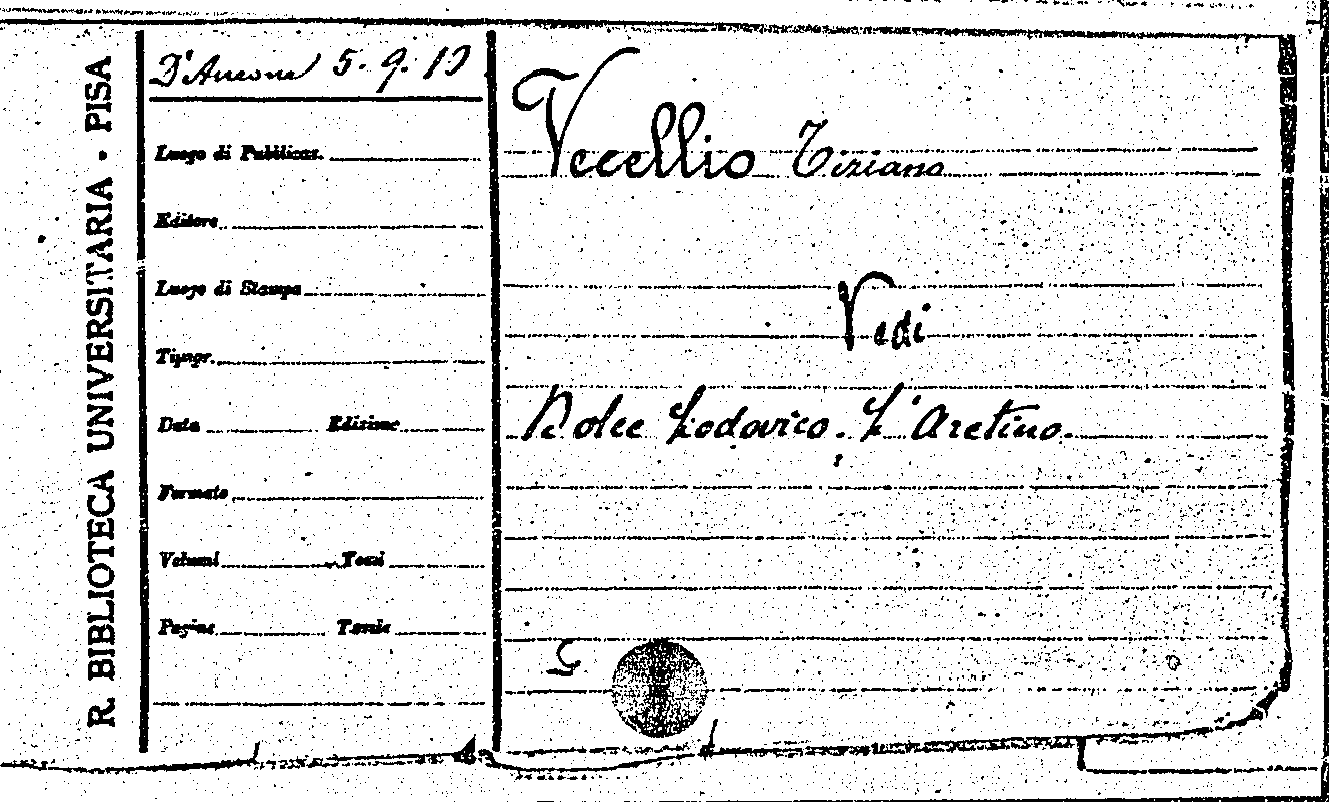 R. BIBLIOTECA UNIVERSITARIA - PISA
D'Ancona 5. 9. 10
Luogo di Pubblicaz.
Editore
Luogo di Stampa
Tipogr.
Data Edizione
Formato
Volumi Tomi
Pagine Tavole
Vecellio Tiziano
Vedi
Dolce Lodovico. L'Aretino.